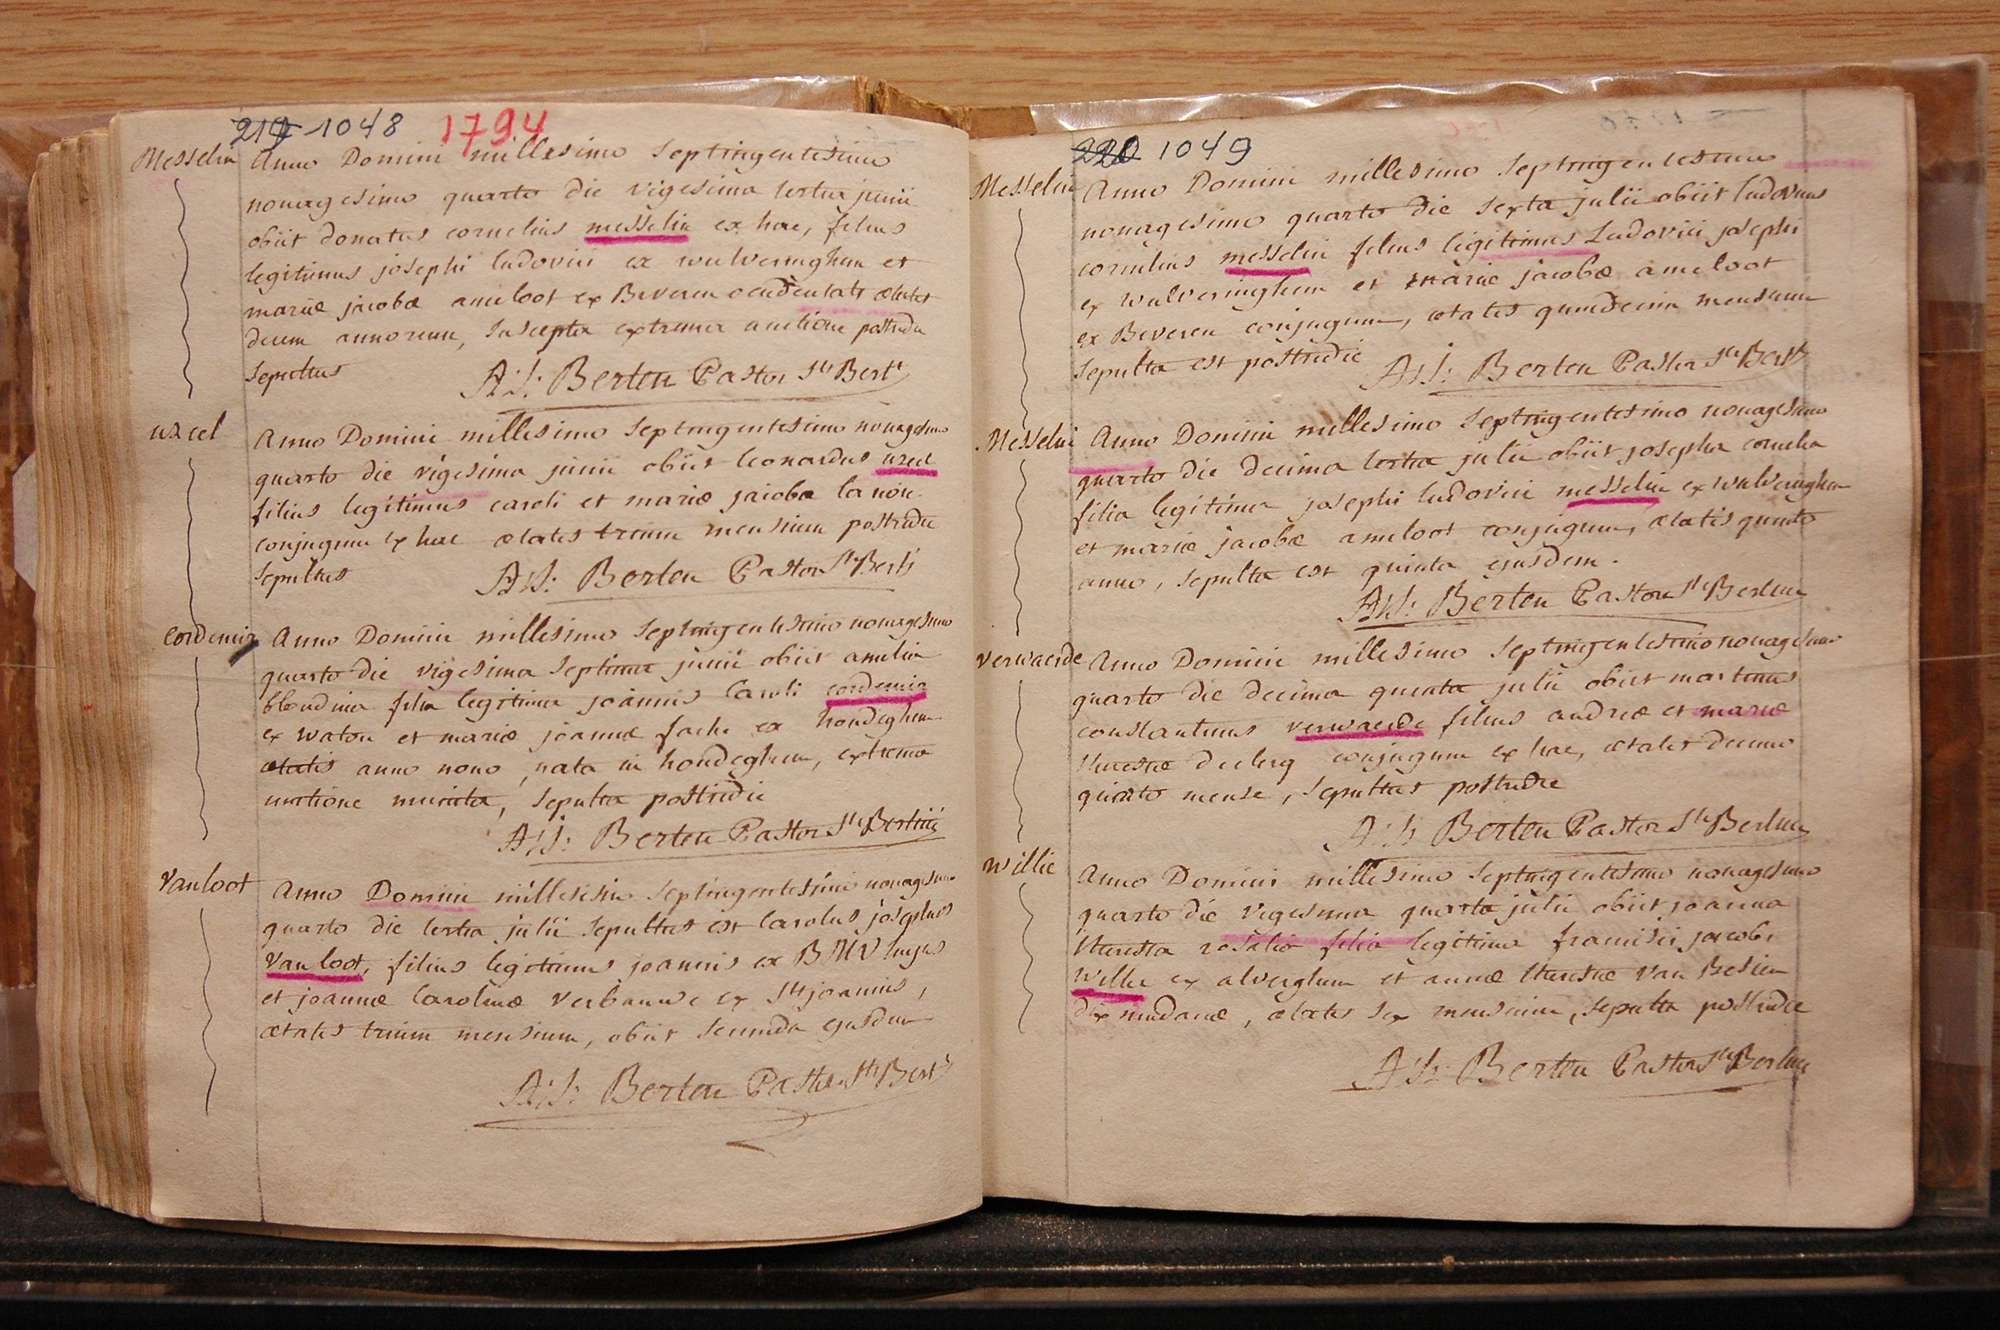 219 1048 1794
Messelin Anno Domini millesimo Septingentesimo
nonagesimo quarto die vigesima tertia junii
obiit donatus cornelius messelin ex hac, filius
legitimus josephi ludovici ex wulveringhem et
mariæ jacobæ ameloot ex Beveren occidentali ætatis
decem annorum, suscepta extrema unctione postridie
sepultus A:J: Berten Pastor Sti Berti
uxeel Anno Domini millesimo Septingentesimo nonagesimo
quarto die vigesima junii obiit leonardus
filius legitimus caroli et mariæ jacobæ
conjugum ex hac ætatis trium mensium postridie
sepultus A:J: Berten Pastor Sti Berti
Anno Domini millesimo Septingentesimo nonagesimo
quarto die vigesima septima junii obiit amelia
blondina filia legitima joannis Caroli
ex watou et mariæ joannæ ex hondeghem
ætatis anno nono, nata in hondeghem, extrema
unctione munita, sepulta postridie
A:J: Berten Pastor Sti Bertini
Vanloot Anno Domini millesimo Septingentesimo nonagesimo
quarto die tertia julii Sepultus est Carolus josephus
Van loot, filius legitimus joannis ex BMV hujus
et joannæ Carolinæ Verbauwe ex Sti joannis,
ætatis trium mensium, obiit secunda ejusdem
A:J: Berten Pastor Sti Berti
220 1049
Messelin Anno Domini millesimo Septingentesimo
nonagesimo quarto die sexta julii obiit ludovicus
cornelius messelin filius legitimus Ludovici josephi
ex wulveringhem et mariæ jacobæ ameloot
ex Beveren conjugum, ætatis quindecim mensium
sepulta est postridie A:J: Berten Pastor Sti Berti
Messelin Anno Domini millesimo Septingentesimo nonagesimo
quarto die decima tertia julii obiit josepha cornelia
filia legitima josephi ludovici messelin ex wulveringhem
et mariæ jacobæ ameloot conjugum, ætatis quinto
anno, sepulta est quinta ejusdem.
A:J: Berten Pastor Sti Bertini
verwaerde Anno Domini millesimo Septingentesimo nonagesimo
quarto die decima quinta julii obiit martinus
constantinus verwaerde filius andreæ et mariæ
theresiæ conjugum ex hac, ætatis decimo
quinto mense, sepultus postridie
A:J: Berten Pastor Sti Bertini
Willie Anno Domini millesimo Septingentesimo nonagesimo
quarto die vigesima quarta julii obiit joanna
theresia rosalia filia legitima francisci jacobi
Willie ex alveringhem et annæ theresiæ Van Besien
dixmudanæ, ætatis sex mensium, sepulta postridie
A:J: Berten Pastor Sti Bertini